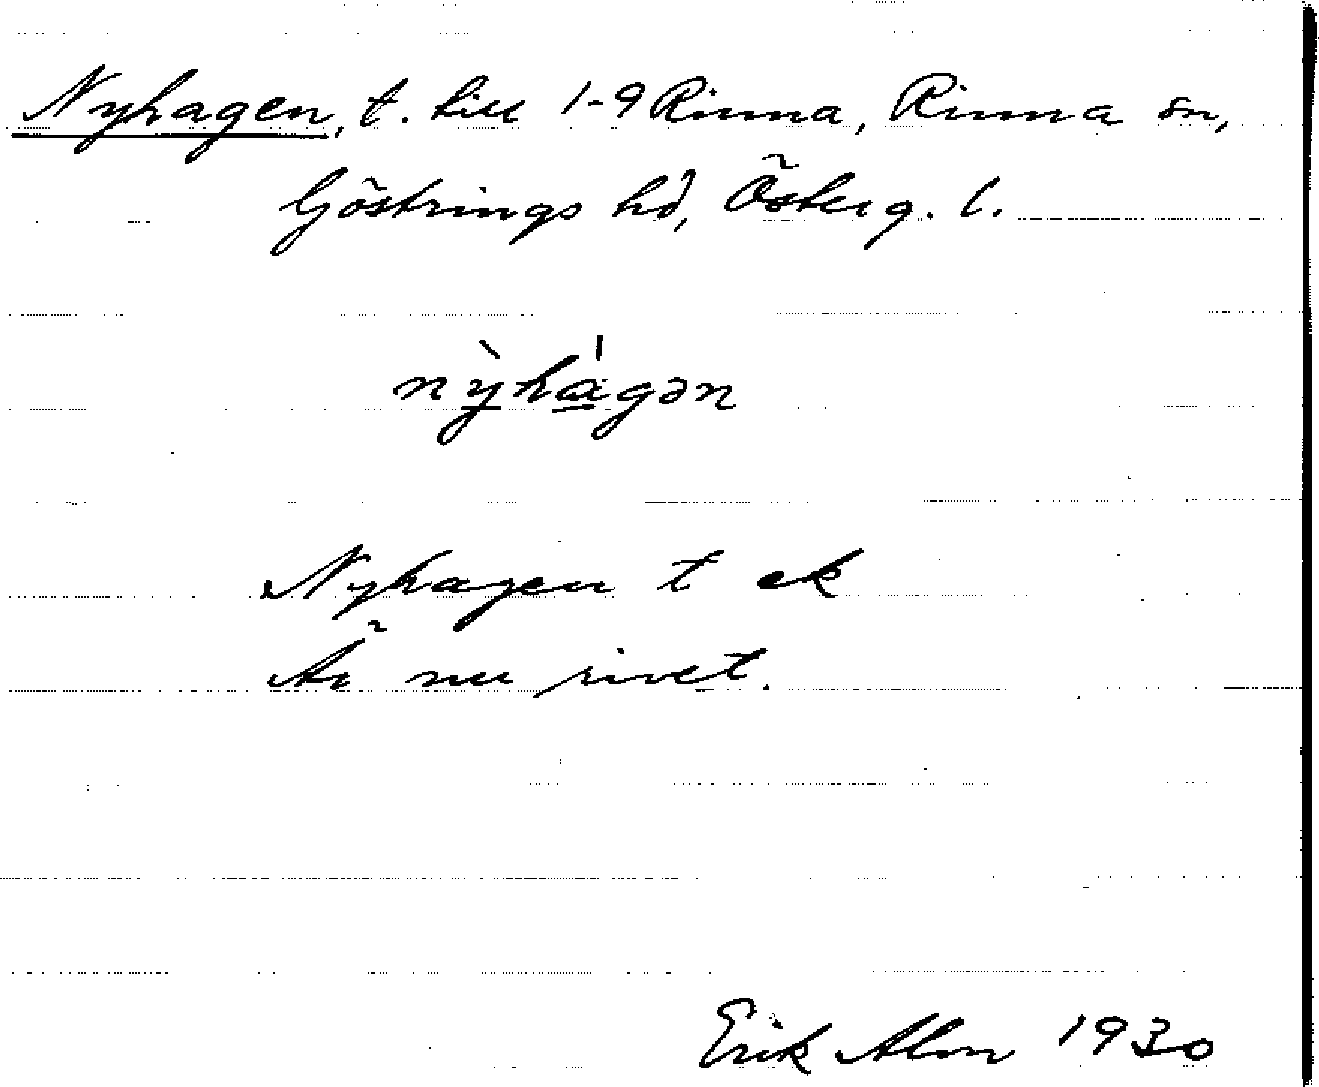 Nyhagen, t. till 1-9 Rinna, Rinna sn,
Göstrings hd, Österg. l.
nỳhágən
Nyhagen t ek
Är nu rivet.
Erik Alm 1930